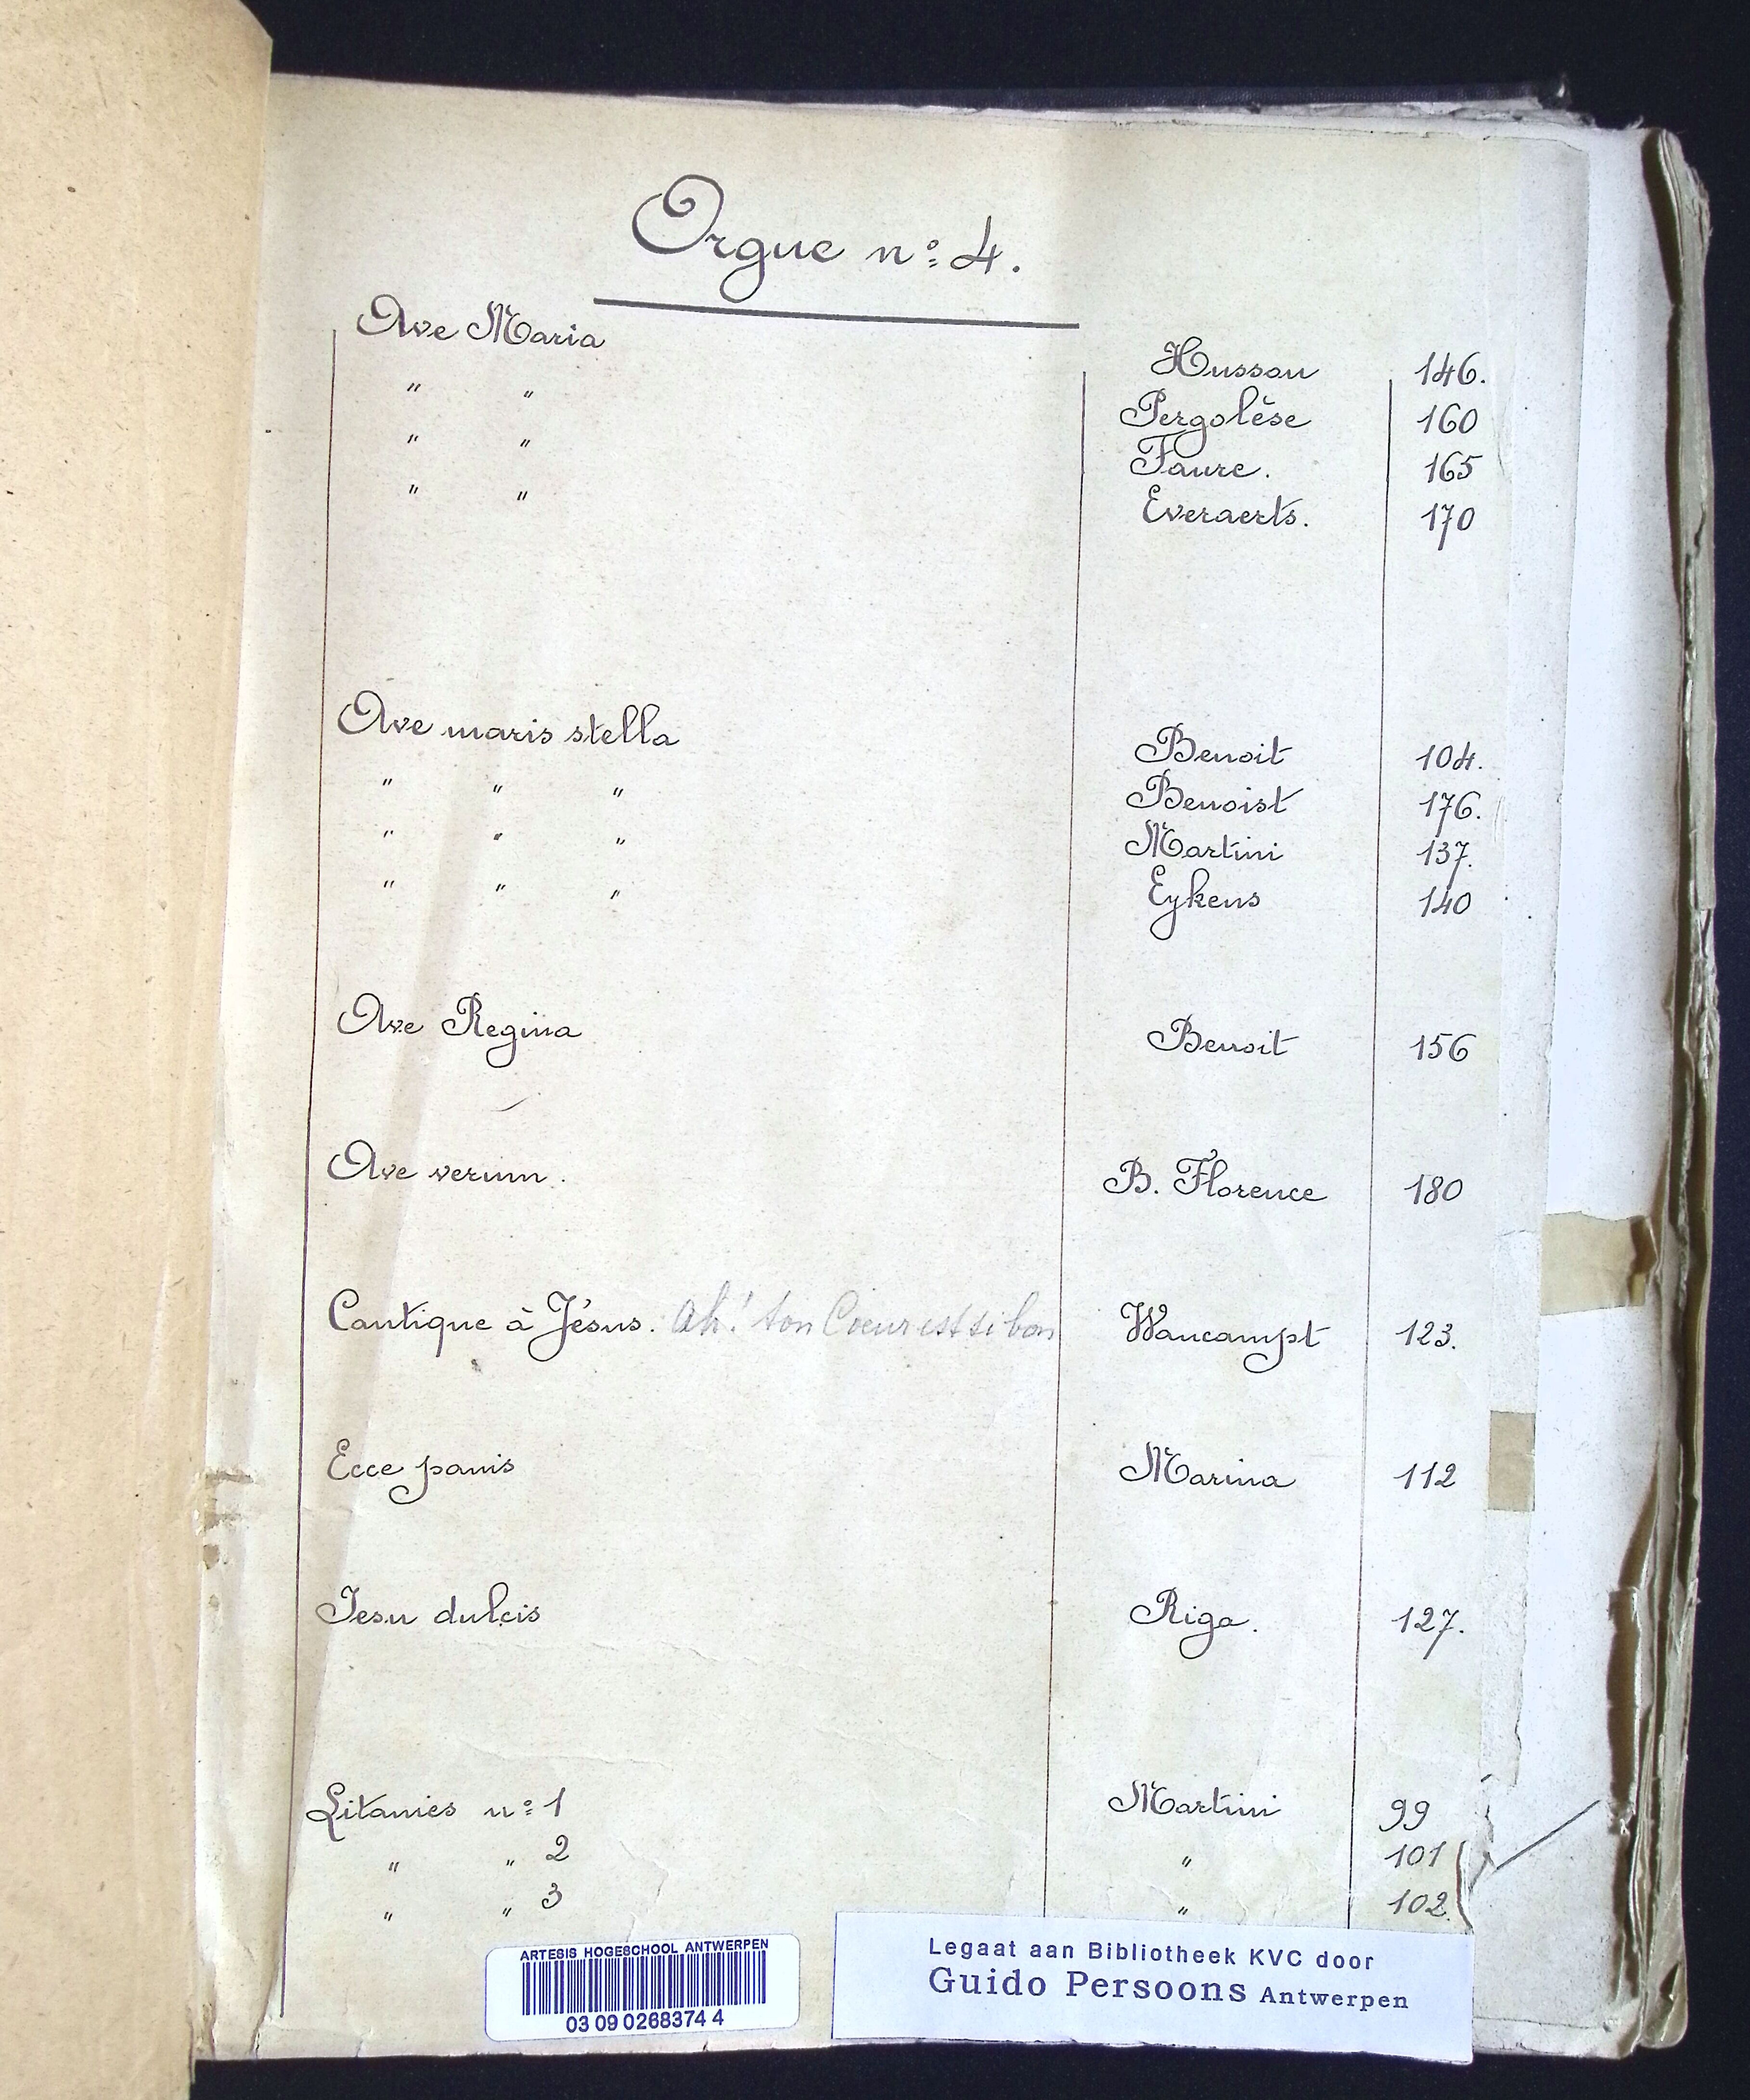 Orgue nº 4.
Ave Maria Husson 146.
" " Pergolèse 160
" " Faure. 165
" " Everaerts. 170
Ave maris stella Benoit 104.
" " " Benoist 176.
" " " Martini 137.
" " " Eykens 140
Ave Regina Benoit 156
Ave verum. B. Florence 180
Cantique à Jésus. Ah! ton Coeur est si bon Waucampt 123.
Ecce panis Marina 112
Jesu dulcis Riga. 127.
Litanies nº 1 Martini 99
" " 2 " 101
" " 3 " 102.
ARTESIS HOGESCHOOL ANTWERPEN
03 09 0268374 4
Legaat aan Bibliotheek KVC door
Guido Persoons Antwerpen